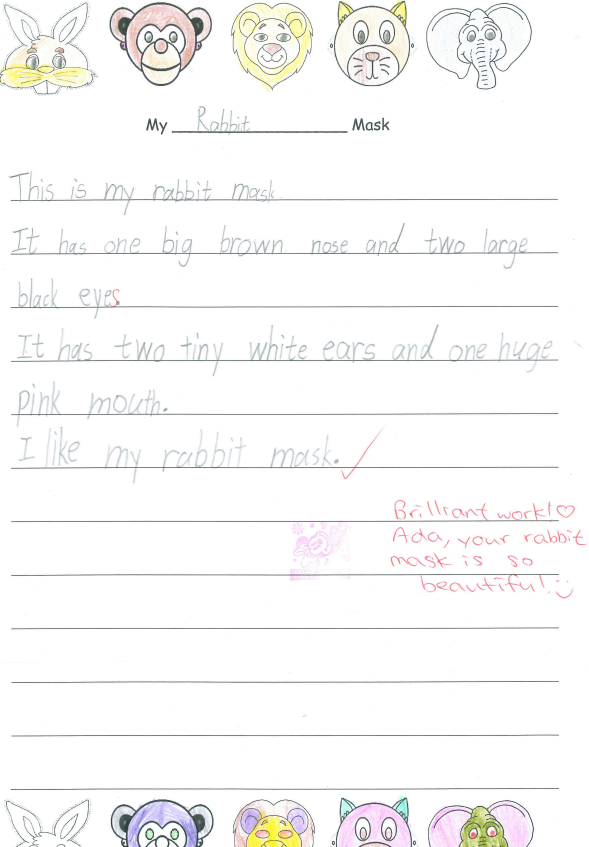 My Rabbit Mask
This is my rabbit mask.
It has one big brown nose and two large
black eyes.
It has two tiny white ears and one huge
pink mouth.
I like my rabbit mask.
Brilliant work!♡
Ada, your rabbit
mask is so
beautiful!